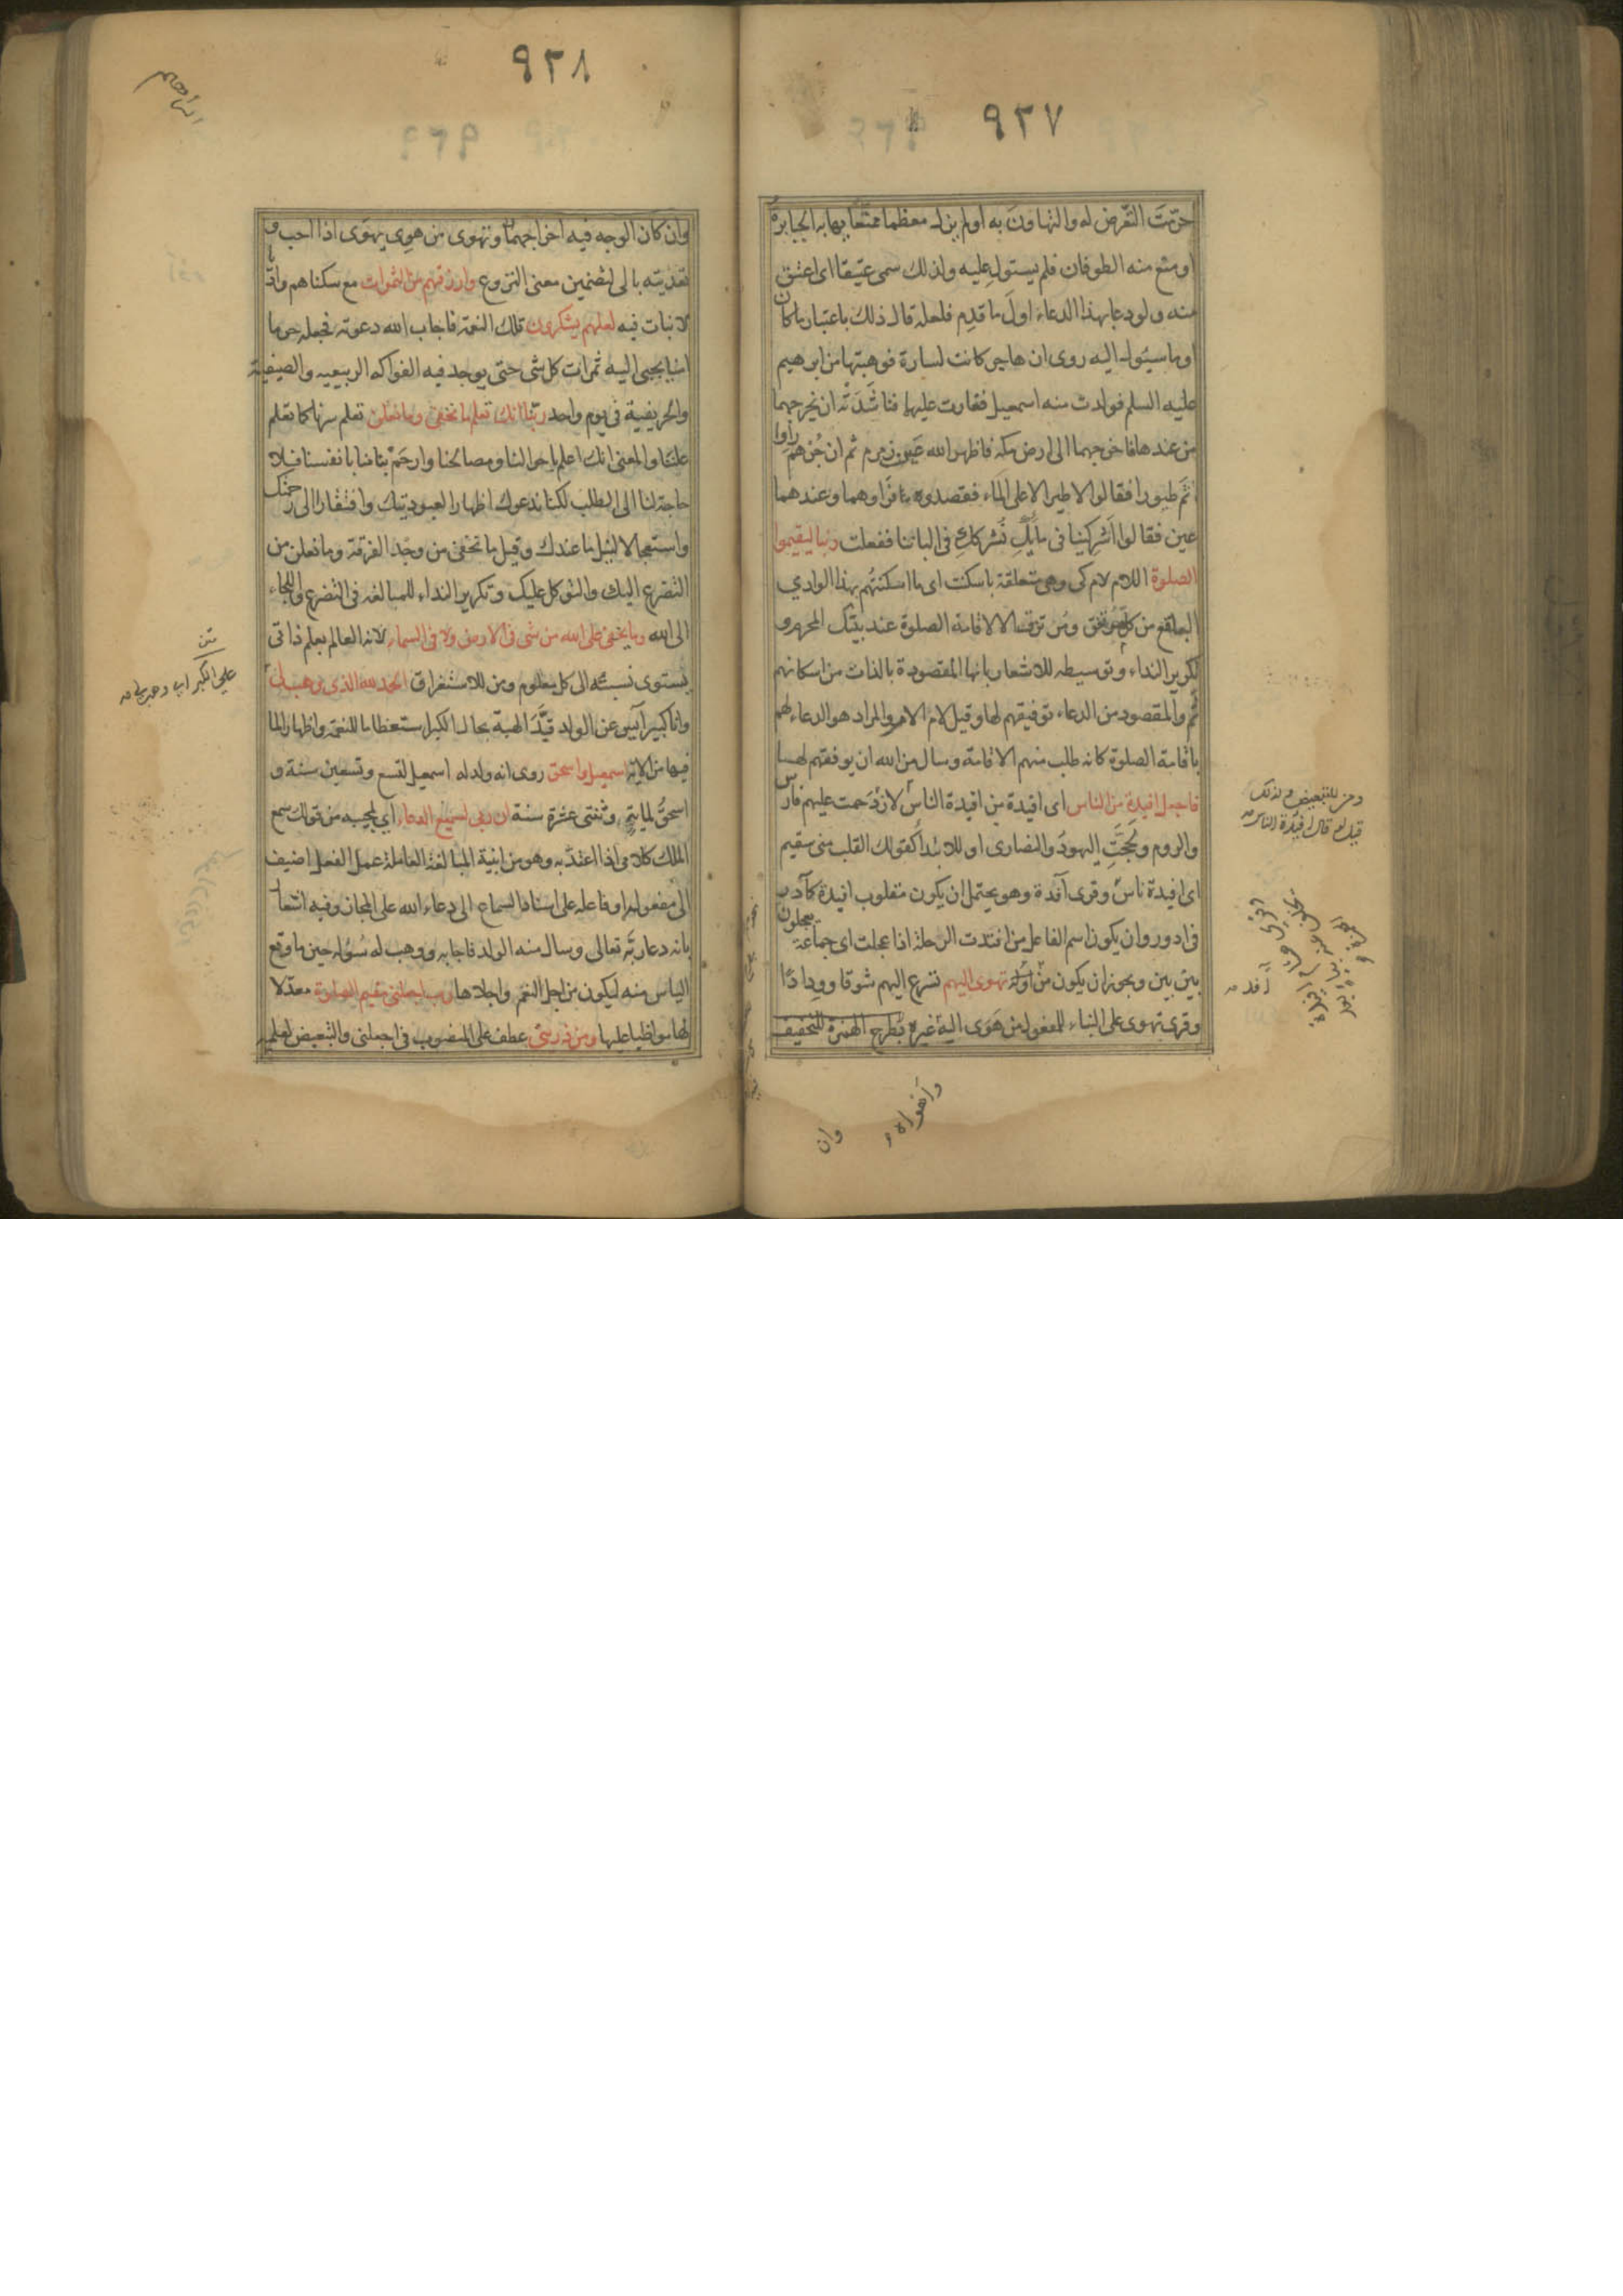 ٩٢٧
حرّمتَ التعّرض له والتهاونَ به او لم يزل معظما ممنّعا يهابه الجبابرة
او منع منه الطوفان فلم يستول عليه ولذلك سمى عتيقا اى اعتق
منه ولو دعا بهذا الدعاء اولَ ما قدِم فلعله قال ذلك باعتبار ما كان
او ما سيئول اليه روى ان هاجر كانت لسارة فوهبتها من ابرهيم
عليه السلم فولدت منه اسمعيل فغارت عليها فناشَدَتْه ان يخرجهما
من عندها فاخرجهما الى ارض مكه فاظهر الله عَين زمزم ثم ان جُرْهم رأوا
ثَمَّ طيورا فقالوا لا طير الا على الماء فقصدوه فرأوهما وعندهما
عين فقالوا اَشرِكينا فى مائِكِ نُشرككِ فى الباننا ففعلت ربنا ليقيموا
الصلوة اللام لام كى وهى متعلقة باسكنت اى ما اسكنتُهم بهذا الوادي
البلقع من كل مرتفق ومُرتزق الا لاقامة الصلوة عند بيتك المحرم و
تكرير النداء وتوسيطه للاشعار بانها المقصودة بالذات من اسكانهم
ثَم والمقصود من الدعاء توفيقهم لها وقيل لام الامر والمراد هو الدعاء لهم
باقامة الصلوة كانه طلب منهم الاقامة وسال من الله ان يوفقهم لها
فاجعل افيدة من الناس اى افيدة من افيدة الناس لازدحمت عليهم فارس
والروم ولحجّتِ اليهودُ والنصارى او للابتدا كقولك القلب منى سقيم
اى افيدة ناس وقرى آفدة وهو يحتمل ان يكون مقلوب افيدة كآدر
فى ادور وان يكون اسم الفاعل من افدت الرحلة اذا عجلت اى جماعة يعجلون
بين بين ويجوز ان يكون من افد تهوى اليهم تسرع اليهم شوقا وودادًا
وقرى تهوى على البناء للمفعول من هَوَى اليه غيره بُطرح الهمزة للتخفيف
ومن للتبعيض ولذلك
قيل لو قال افيدة الناس
وان
٩٢٨
وان كان الوجه فيه اخراجهما وتهوى من هوِى يهوَى اذا احب و
تعديته بالى لتضمين معنى النزوع وارزقهم من الثمرات مع سكناهم واديا
لا نبات فيه لعلهم يشكرون تلك النعمة فاجاب الله دعوته فجعله حرما
امنا يجبى اليه ثمرات كل شى حتى يوجد فيه الفواكه الربيعيه والصيفية
والخريفية فى يوم واحد ربّنا انك تعلم ما نخفى وما نعلن تعلم سرنا كما تعلم
علننا والمعنى انك اعلم باحوالنا ومصالحنا وارحَمُ بنا منا بانفسنا فلا
حاجة لنا الى الطلب لكنا ندعوك اظهارا لعبوديتك وافتقارا الى رحمتك
واستعجالا لنيل ما عندك وقيل ما نخفى من وجد الفرقة وما نعلن من
التضرع اليك والتوكل عليك وتكرير النداء للمبالغه فى التضرع واللجاء
الى الله وما يخفى على الله من شى فى الارض ولا فى السماء لانه العالم بعلم ذاتى
يستوى نسبته الى كل معلوم ومن للاستغراق الحمد لله الذى وهب لى
وانا كبير آيس عن الولد قيَّد الهبة بحال الكبر استعظاما للنعمة واظهارا لما
فيها من الاية اسمعيل واسحق روى انه ولد له اسمعيل لتسع وتسعين سنة و
اسحق لماية وثنتى عشرة سنة ان ربى لسميع الدعاء اي لمجيبه من قولك سمع
الملك كلامى اذا اعتدّ به وهو من ابنية المبالغة العاملة عمل الفعل اضيف
الى مفعوله او فاعله على اسناد السماع الى دعاء الله على المجاز وفيه اشعار
بانه دعا ربَّه تعالى وسال منه الولد فاجابه ووهب له سُؤله حين ما وقع
الياس منه ليكون من اجل النعم واجلاها رب اجعلنى مقيم الصلوة معدّلا
لها مواظبا عليها ومن ذريتى عطف على المنصوب فى اجعلنى والتبعيض لعلمه
على الكبر